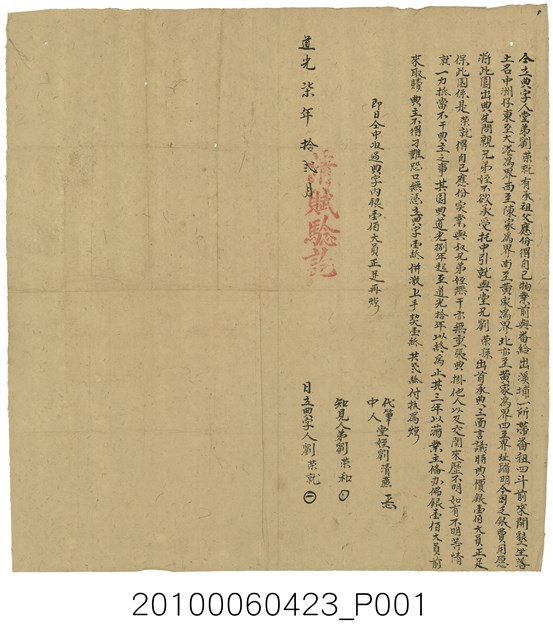 仝立典字人堂弟劉榮就有承祖父應份得自己物業前與番給出溪埔一所帶番租四斗前來開墾坐落
土名中洲仔東至大溪為界西至陳家為界南至黃家為界北亦至黃家為界四至界址踏明今因乏銀費用愿
將此園出典先問親兄弟姪不欲承受托中引就與堂兄劉榮孫出首承典三面言議時典價銀壹佰大員正足
保此園係是榮就得自己應份實業與叔兄弟姪無干亦無重張典掛他人以及交關來歷不明如有不明等情
就一力抵當不干典主之事其園典道光捌年起至道光拾年以終為止共三年以滿業主備办佛銀壹佰大員前
來取贖典主不得刁難恐口無憑立典字壹紙併繳上手契壹紙共弍紙付执為炤
即日仝中收過典字內銀壹佰大員正足再炤
代筆
中人堂姪劉清
知見人弟劉榮和
日立典字人劉榮就
道光柒年拾弍月
清賦驗訖
20100060423_P001